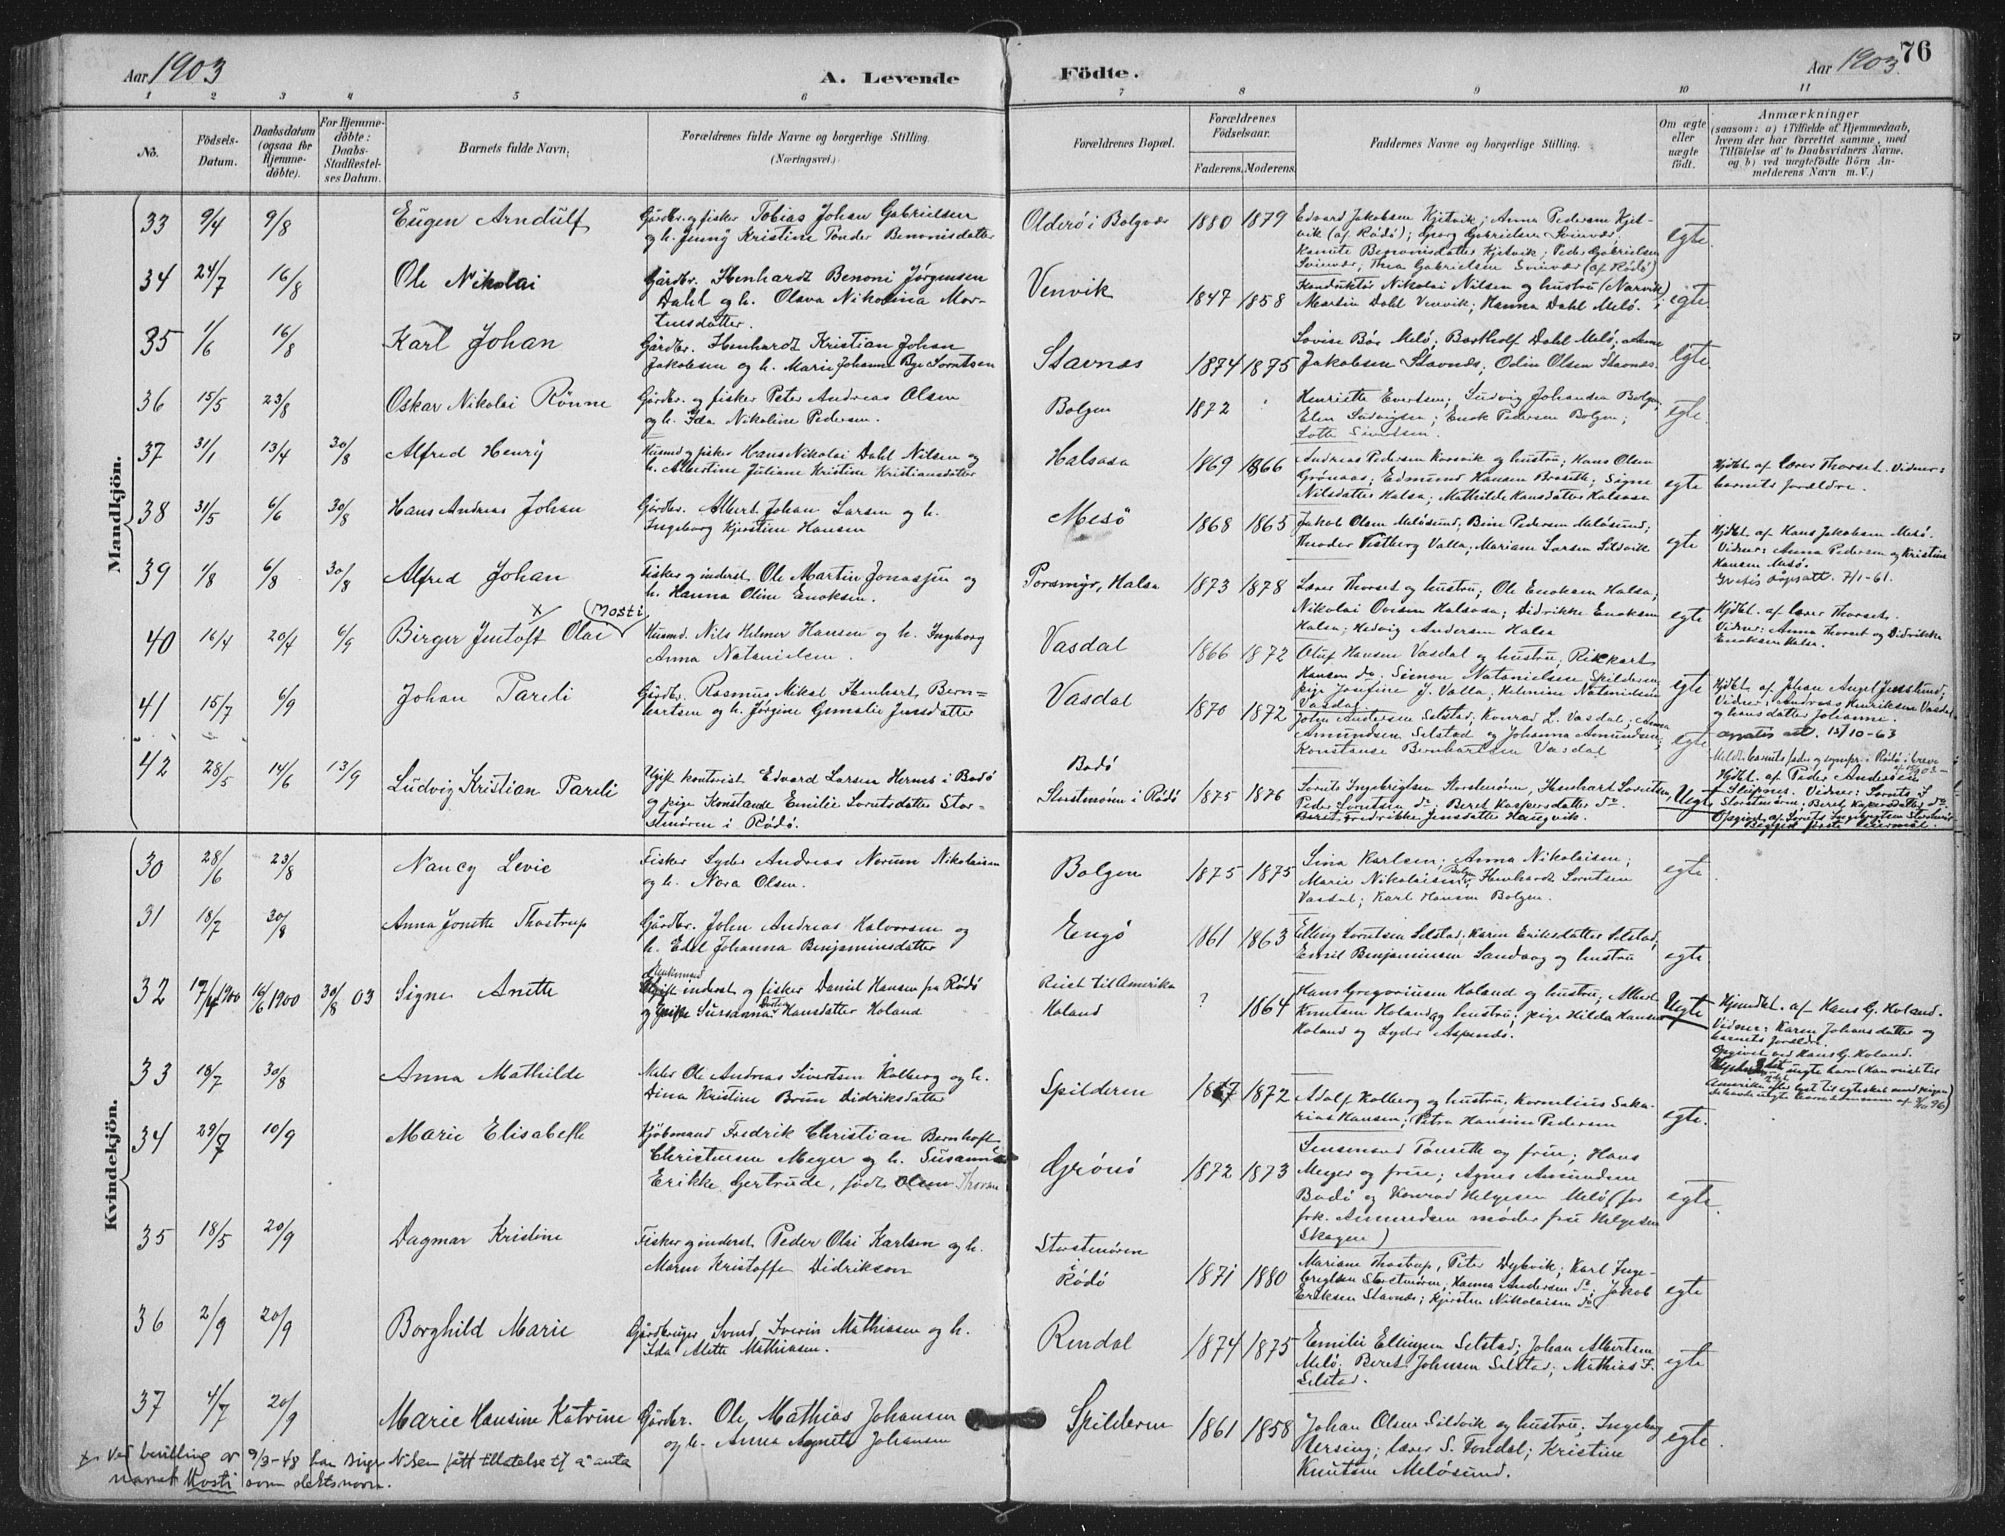 Aar 1903
A. Levende Födte.
Aar 1903.
76
1 2 3 4 5 6 7 8 9 10 11
No.
Födsels-
Datum.
Daabsdatum
(ogsaa for
Hjemme-
döbte).
For Hjemme-
döbte:
Daabs-
Stadfæstel-
ses Datum.
Barnets fulde Navn.
Forældrenes fulde Navne og borgerlige Stilling.
(Næringsvei.)
Forældrenes Bopæl.
Forældrenes
Födselsaar.
Faderens. Moderens.
Faddernes Navne og borgerlige Stilling.
Om ægte
eller
uægte
födt.
Anmærkninger
(saasom: a) i Tilfælde af Hjemmedaab,
hvem der har forrettet samme, med
Tilföielse af to Daabsvidners Navne,
og b) ved uægtefödte Börn An-
melderens Navn m. V.)
Mandkjön.
33 9/4 9/8 Eugen Arndulf
Gårdbr. og fisker Tobias Johan Gabrielsen
og h. Jenny Kristine Tonder Benonisdatter
Olderö i Bolgvær 1880 1879
Edvard Jakobsen Kjelvik; Anna Pedersen Kjel-
vik (af Rödö); Georg Gabrielsen Svinvær;
Benonisdatter Kjelvik; Peder Gabrielsen
Svinvær; Thea Gabrielsen Svinvær (af Rödö)
egte
34 24/7 16/8 Ole Nikolai
Gårdbr. Henhardt Benoni Jörgensen
Dahl og h. Olava Nikolina Mor-
tensdatter.
Venvik 1847 1858
Konduktör Nikolai Nilsen og hustru (Narvik)
Martin Dahl Venvik; Hanna Dahl Melö.
egte
35 1/6 16/8 Karl Johan
Gårdbr. Henhardt Kristian Johan
Jakobsen og h. Marie Johanne Bye Sorntsen
Stavnes 1874 1875
Lovise Bör Melö; Bartholf Dahl Melö; Anne
Jakobsen Stavnes; Odin Olsen Stavnes
egte
36 15/5 23/8 Oskar Nikolai Rönne
Gårdbr. og fisker Peter Andreas Olsen
og h. Ida Nikoline Pedersen.
Bolgen 1872
Henriette Evertsen; Ludvig Johansen Bolgen;
Elen Ludvigsen; Enok Pedersen Bolgen;
Lotte Sivertsen.
egte
37 31/1 13/4 30/8 Alfred Henry
Husmd og fisker Hans Nikolai Dahl Nilsen og
h. Albertine Juliane Kristine Kristiansdatter
Halsosa 1869 1866
Andreas Pedersen Korsvik og hustru; Hans Olsen
Grönaas; Edmund Hansen Braseth; Signe
Nilsdatter Halsa; Mathilde Hansdatter Halsosa
egte
Hjdbt. af lærer Thorset. Vidner:
barnets forældre.
38 31/5 6/6 30/8 Hans Andreas Johan
Gårdbr. Albert Johan Larsen og h.
Ingeborg Kjerstine Hansen
Mesö 1868 1865
Jakob Olsen Melösund; Bine Pedersen Melösund;
Theodor Vestberg Valla; Mariane Larsen Selsvik
egte
Hjdbt. af Hans Jakobsen Mesö.
Vidner: Anna Pedersen og Kristine
Hansen Mesö.
Gratis dåpsatt. 7/1-61.
39 1/8 6/8 30/8 Alfred Johan
Fisker og inderst Ole Martin Jonassen og
h. Hanna Oline Enoksen.
Porsmyr, Halsa 1873 1878
Lærer Thorset og hustru; Ole Enoksen Halsa;
Nikolai Ovesen Halsosa; Didrikke Enoksen
Halsa; Hedvig Andersen Halsa
egte
Hjdbt. af lærer Thorset.
Vidner: Anna Thorset og Didrikke
Enoksen Halsa.
x (Mosti)
40 16/4 20/4 6/9 Birger Justoft Olai
Husmd. Nils Helmer Hansen og h. Ingeborg
Anna Natanielsen.
Vasdal 1866 1872
Oluf Hansen Vasdal og hustru; Rikkart
Hansen do; Simon Natanielsen Spilderen;
pige Josefine J. Valla; Helmine Natanielsen
Vasdal
egte
Hjdbt. af Johan Angel Jensslund,
Vidner: Andreas Henriksen Vasdal
og hans datter Johanne.
41 15/7 6/9 Johan Pareli
Gårdbr. Rasmus Mikal Henhart Bern-
hartsen og h. Jörgine Gemalie Jensdatter
Vasdal 1870 1872
John Andersen Selstad; Konrad L. Vasdal; Anna
Amundsen Selstad og Johanna Amundsen;
Konstanse Bernhartsen Vasdal
egte
attest 15/10-63
42 28/5 14/6 13/9 Ludvig Kristian Pareli
Ugift kontorist Edvard Larsen Hernes i Bodö
og pige Konstande Emilie Sorntsdatter Stor-
stmören i Rödö.
Bodö
Storstmören i Rödö 1875 1876
Sornts Ingebrigtsen Storstmören, Henhart Sorntsen,
Peder Sorntsen do; Beret Kaspersdatter do.
Beret Fredrikke Jensdatter Haugvik.
Uegte
Hjdbt. af Peder Andersen
Vidner: Sornts I
Storstmören; Beret Kapersdatter do.
Opgivet af Sornts Ingebrigtsen Storstmören
Begges første leiermål.
Kvindekjön.
30 28/6 23/8 Nancy Levie
Fisker Syder Andreas Norum Nikolaisen
og h. Nora Olsen.
Bolgen 1875 1875
Sina Karlsen; Anna Nikolaisen;
Marie Nikolaisen Bolgen; Henhardt Sorntsen
Vasdal; Karl Hansen Bolgen.
egte
31 18/7 30/8 Anna Jonette Thostrup
Gårdbr. John Andreas Halvorsen og
h. Edel Johanna Benjaminsdatter
Engö 1861 1863
Elling Sorntsen Selstad; Karen Eriksdatter Selstad;
Emil Benjaminsen Sandvåg og hustru
egte
32 17/4 1900 16/6 1900 30/8 03 Signe Anette
Enkemand
inderst og fisker Daniel Hansen fra Rödö
og pige Susanna Hansdatter Holand
Reist til Amerika
Holand ? 1864
Hans Gregoriusen Holand og hustru; Albert
Knutsen Holand og hustru; pige Hilda Hansen
Holand og Syder Aspenes.
Uegte
Hjemdbt. af Hans G. Holand.
Vidner: Karen Johansdatter og
barnets forældre.
Opgivet ved Hans G. Holand.
33 18/7 30/8 Anna Mathilde
Maler Ole Andreas Sivertsen Kolberg og h.
Dina Kristine Brun Didriksdatter
Spilderen 1867 1872
Adolf Kolberg og hustru; Kornelius Saka-
riassen; Petra Hansine Pedersen
egte.
34 29/7 10/9 Marie Elisabeth
Kjöbmand Fredrik Christian Bernhoft
Christensen Meyer og h. Susanna
Erikke Gertrude, födt Olsen Thorsen
Grönö 1872 1873
Lensmand Tönseth og frue; Hans
Meyer og frue; Agnes Amundsen
Bodö og Konrad Helgesen Melö (for
frk. Amundsen möder fru Helgesen
Skogen)
egte.
35 18/5 20/9 Dagmar Kristine
Fisker og inderst Peder Olai Karlsen og h.
Maren Kristoffe Didriksen
Storstmören
i Rödö 1871 1880
Mariane Thostrup, Peter Dybvik; Karl Inge-
brigtsen Storstmören; Hanna Andersen do; Jakob
Eriksen Stavnes; Kjersten Nikolaisen do
egte
36 2/9 20/9 Borghild Marie
Gårdbruger Svend Iverin Mathiasen og h.
Ida Alette Mathiasen.
Rendal 1874 1875
Emilie Ellingsen Selstad; Johan Albertsen
Melö; Beret Johnsen Selstad; Mathias F.
Selstad.
egte
37 4/7 20/9 Marie Hansine Katrine
Gårdbr. Ole Mathias Johansen
og h. Anna Agnete Johansen
Spilderen 1861 1858
Johan Olsen Selsvik og hustru; Ingeborg
Versing; lærer S. Tondal; Kristine
Knutsen Melösund.
egte
x Ved bevilling av 9/3-48 har Birger Nilsen fått tillatelse til å anta
navnet Mosti som slektsnavn.